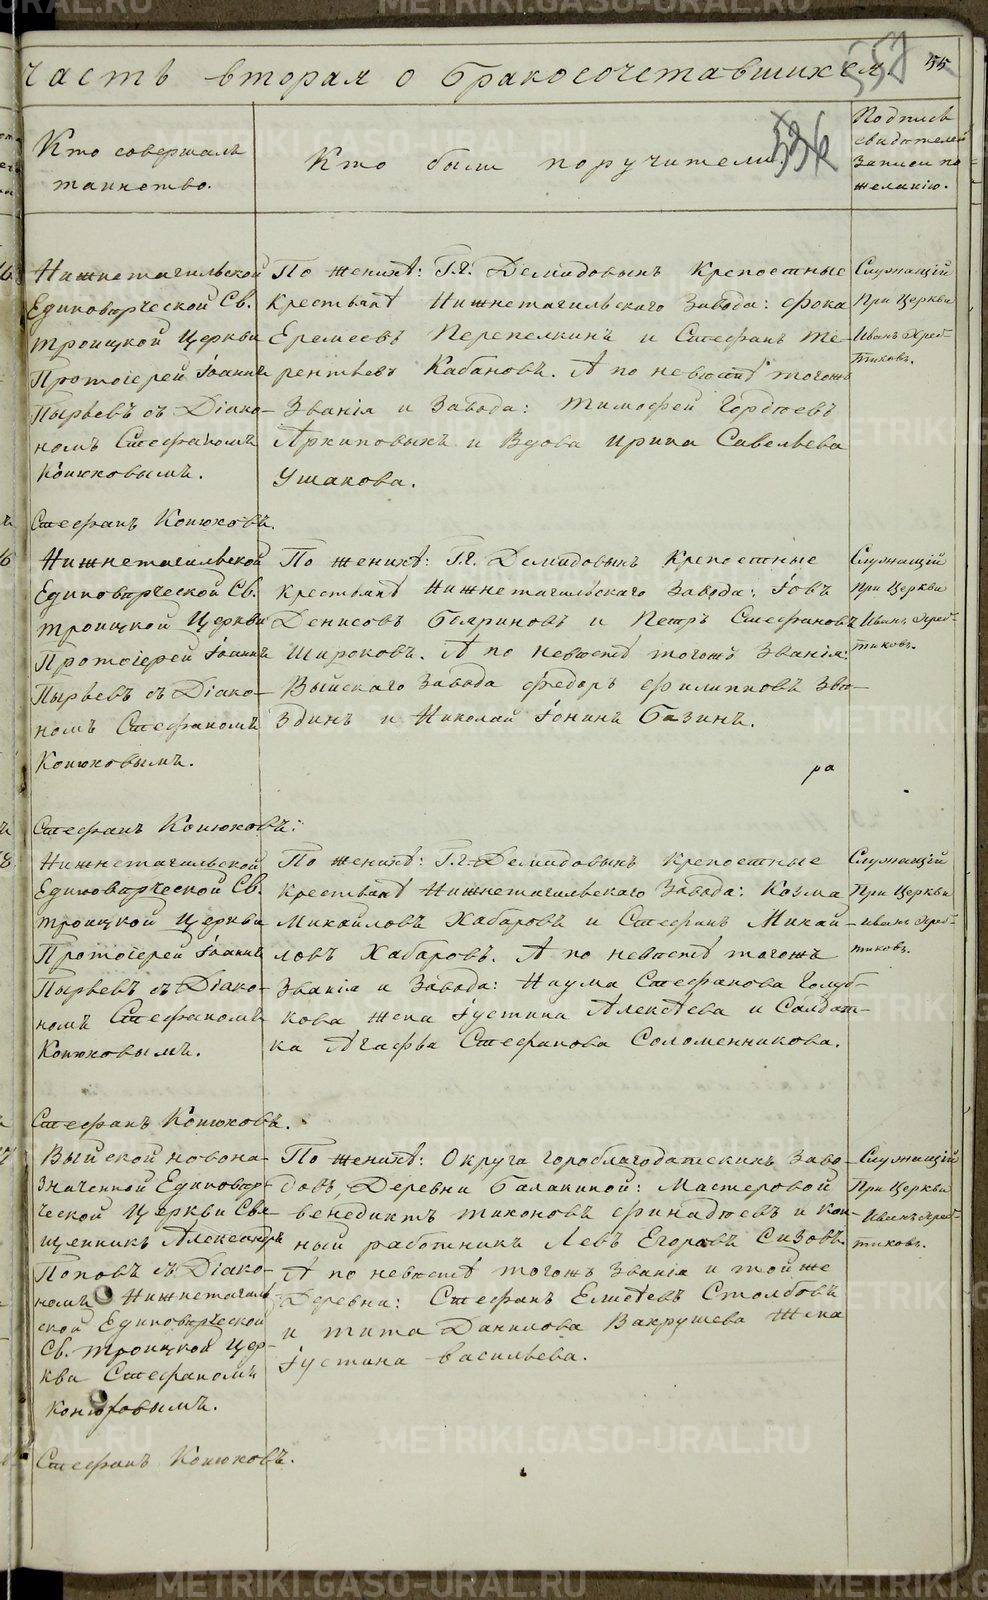 часть вторая о бракосочетавшихся.
557
55
Кто совершалъ
таинство.
Кто были поручители.
536
Подпись
свидѣтелей
записи по
желанію.
Нижнетагильской
Единовѣрческой Св.
Троицкой Церкви
Протоіерей Іоаннъ
Пырьевъ съ Діако-
номъ Стефаномъ
Конюховымъ.
Стефанъ Конюховъ.
По женихѣ: Г.г. Демидовыхъ крепостные
крестьянѣ Нижнетагильскаго завода: Фока
Еремеевъ Перепелкинъ и Стефанъ Те-
рентьевъ Кабановъ. А по невѣстѣ тогожъ
званія и завода: Тимофей Гордѣевъ
Архиповыхъ и Вдова Ирина Савельева
Ушакова.
Служащій
При Церкви
Иванъ Хреб-
тиковъ.
Нижнетагильской
Единовѣрческой Св.
Троицкой Церкви
Протоіерей Іоаннъ
Пырьевъ съ Діако-
номъ Стефаномъ
Конюховымъ.
Стефанъ Конюховъ.
По женихѣ: Г.г. Демидовыхъ крепостные
крестьянѣ Нижнетагильскаго завода: Іовъ
Денисовъ Бояриновъ и Петръ Стефановъ
Широковъ. А по невѣстѣ тогожъ званія:
Выйскаго завода Федоръ Филипповъ Зво-
здинъ и Николай Іонинъ Базинъ.
ра
Служащій
При Церкви
Иванъ Хреб-
тиковъ.
Нижнетагильской
Единовѣрческой Св.
Троицкой Церкви
Протоіерей Іоаннъ
Пырьевъ съ Діако-
номъ Стефаномъ
Конюховымъ.
Стефанъ Конюховъ.
По женихѣ: Г.г. Демидовыхъ крепостные
крестьянѣ Нижнетагильскаго завода: Козма
Михайловъ Хабаровъ и Стефанъ Михай-
ловъ Хабаровъ. А по невѣстѣ тогожъ
званія и завода: Наума Стефанова Голуб-
кова жена Іустина Алексѣева и Солдат-
ка Агафья Стефанова Соломенникова.
Служащій
При Церкви
Иванъ Хреб-
тиковъ.
Выйской новона-
значенной Единовѣр-
ческой Церкви Свя-
щенникъ Александръ
Поповъ съ Діако-
номъ Нижнетагиль-
ской Единоверческой
Св. Троицкой Цер-
кви Стефаномъ
Конюховымъ.
Стефанъ Конюховъ.
По женихѣ: Округа гороблагодатскихъ заво-
довъ, Деревни Балакиной: Мастеровой
Венедиктъ Тихоновъ Финадѣевъ и кон-
ный работникъ Левъ Егоровъ Сизовъ.
А по невѣстѣ тогожъ званія и той же
Деревни: Стефанъ Елисѣевъ Столбовъ
и Тита Данилова Вахрушева жена
Іустина Васильева.
Служащій
При Церкви
Иванъ Хреб-
тиковъ.
METRIKI.GASO-URAL.RU